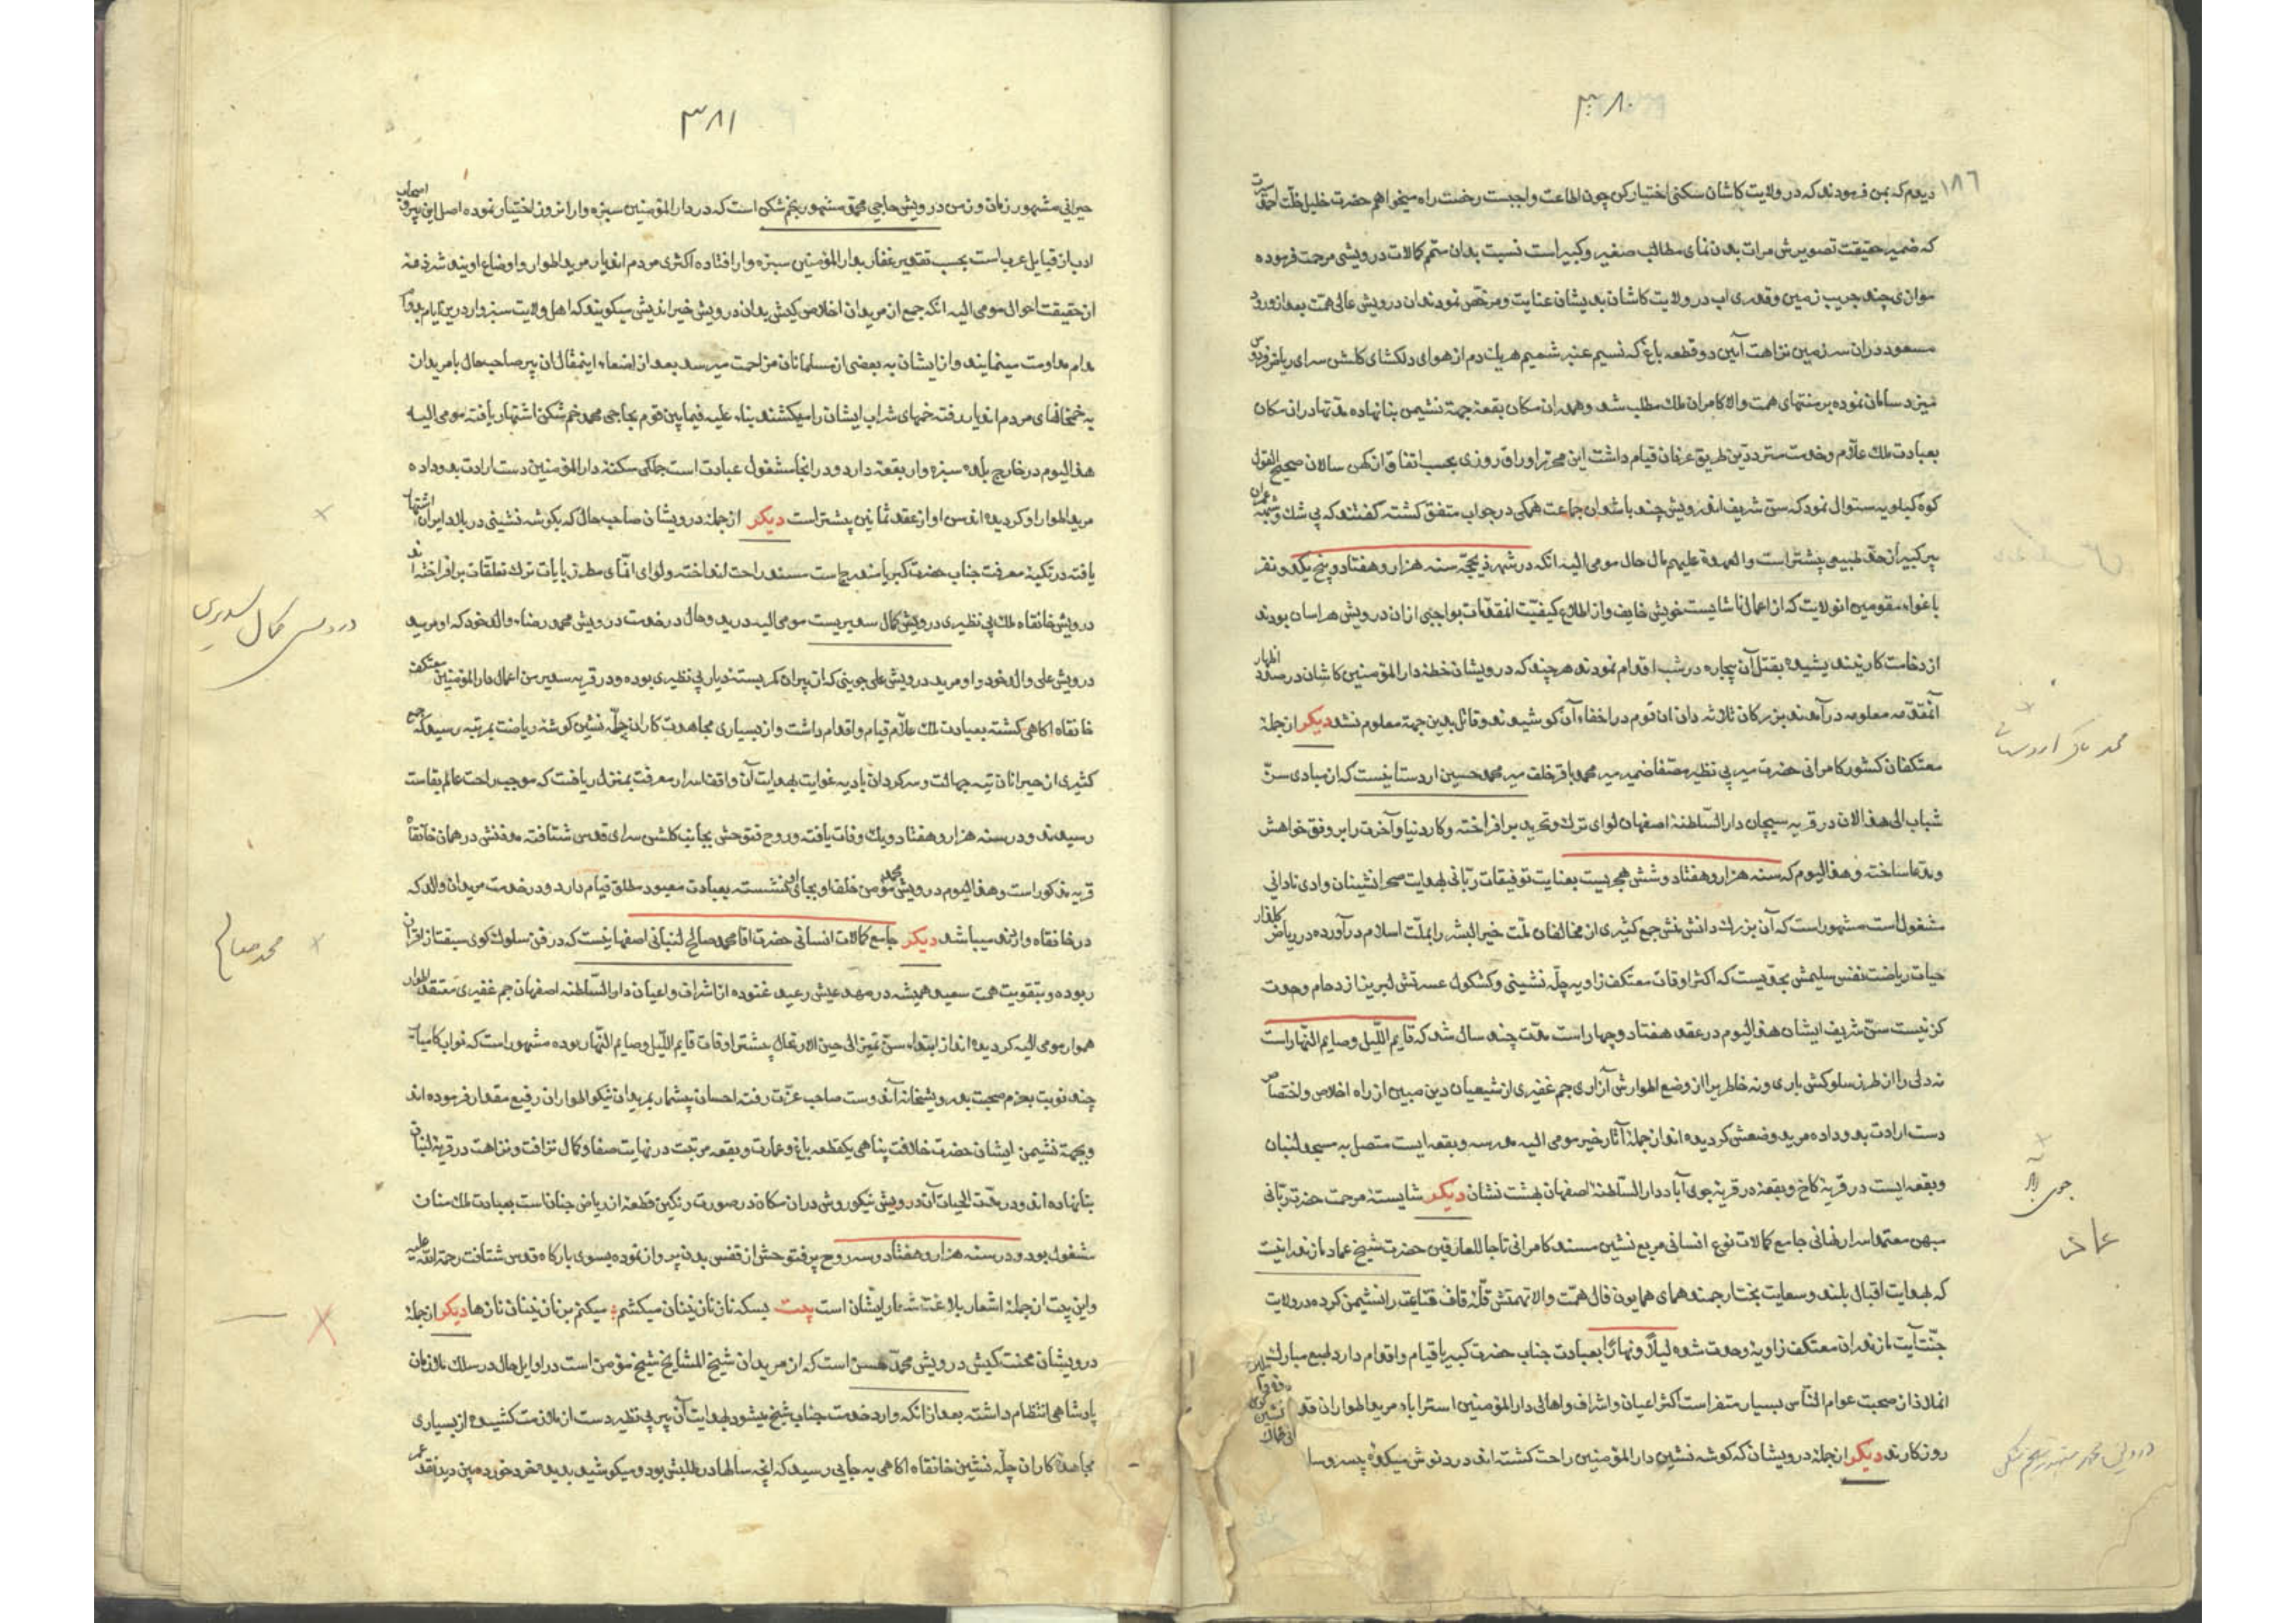 ۳۸۰
۱۸۶
دیدم که بمن فرمودند که در ولایت کاشان سکنی اختیار کن چون اطاعت واجبست رخصت راه میخواهم حضرت خلیل خلّت احمد سیرت
که ضمیر حقیقت تصویرش مرات بدن نمای مطالب صغیر و کبیر است نسبت بدان ستم کالات درویشی مرحمت فرموده
موازی چند جریب زمین و قدری اب در ولایت کاشان بدیشان عنایت و مرخص نمودند ان درویش عالی همّت بعد از ورود
مسعود دران سرزمین نزاهت آیین دو قطعه باغ که نسیم عنبر شمیم هر یك دم از هوای دلکشای کلشن سرای ریاض فردوس
میزد سامان نموده بر منتهای همت والا کامران ملك مطلب شد و همدران مکان بقعهٔ جهة نشیمن بنا نهاده مدّتها دران مکان
بعبادت ملك علّام وخدمت مترددین طریق عرفان قیام داشت این محرّر اوراق روزی بحسب اتفاق از کهن سالان صحیح القول
کوه کیلویه سئوال نمود که سنّ شریف اندرویش چند باشد ان جماعت همکی در جواب متفق کشته کفتند که بی شك وشبهه عمران
پیر کبیر از حدّ طبیعی بیشتر است والعهدة علیهم مال حال مومی الیه انکه در شهر ذیحجّه سنه هزار و هفتاد و پنج یکدو نفر
باغواء مقومین انولایت که از اعمال ناشایست خویش خایف واز اطلاع کیفیّت انمقدّمات بواجبی ازان درویش هراسان بودند
از دخامت کار نیندیشیده بقتل آن بیچاره در شب اقدام نمودند هر چند که درویشان خطهٔ دار المؤمنین کاشان در صدد اظهار
انمقدّمه معلومه در آمدند بزرکان ثلاثه دان ان قوم در اخفاء آن کوشیدند وقاتل بدین جهة معلوم نشد دیکر از جملهٔ
معتکفان کشور کامرانی حضرت میر بی نظیر مصفا ضمیر میر محمد باقر خلف میر محمد حسین اردستانیست که از مبادی سنّ
شباب الی هذا الان در قریه سیچان دار السّلطنهٔ اصفهان لوای ترك و تجرید بر افراخته وکار دنیا و آخرت را بر وفق خواهش
ومدّعا ساخته وهذا الیوم که سنه هزار و هفتاد و شش هجریست بعنایت توفیقات ربّانی بهدایت صحرا نشینان وادی نادانی
مشغول است مشهور است که آن بزرك دانش منش جمع کثیری از مخالفان ملّت خیر البشر را بملّت اسلام در آورده در ریاض کلعذار
حیات ریاضت نفس سلیمش بحدّیست که اکثر اوقات معتکف زاویه چلّه نشینی وکشکول عسرتش لبریز از دحام وحدت
کزنیست سنّ شریف ایشان هذا الیوم در عقد هفتاد و چهار است مدّت چند سال شد که قایم اللّیل وصایم النّهار است
نه دلی را از طرز سلوکش باری ونه خاطریرا از وضع اطوارش آزاری جم غفیری از شیعیان دین مبین از راه اخلاص واختصاص
دست ارادت بدو داده مرید وضعش کردیده اند از جملهٔ آثار خیر مومی الیه مدرسه و بقعه ایست متصل به مسجد لنبان
وبقعه ایست در قریهٔ کاخ وبقعهٔ در قریهٔ جوی آباد دار السّلطنهٔ اصفهان بهشت نشان دیکر شایستهٔ مرحمت حضرت ربّانی
مبهن معتمد اسرار نهانی جامع کمالات نوع انسانی مربع نشین مسند کامرانی تاجا للعارفین حضرت شیخ عماد مازندرانیست
که بهدایت اقبال بلند وسعایت بختارجمند همای همایون فال همّت والا نهمتش قلّهٔ قاف قناعت را نشیمن کرده در ولایت
جنّت آیت مازندران معتکف زاویهٔ وحدت شده لیلاً ونهاراً بعبادت جناب حضرت کبریا قیام واقدام دارد طبع مبارك
انملاذ از صحبت عوام النّاس بسیار متنفر است اکثر اعیان واشراف واهالی دار المؤمنین استراباد مرید اطوار ان
روزکارند دیکر از جمله درویشان که کوشه نشین دار المؤمنین راحت کشته اند درد نوش میکدهٔ
محمد باقر اردستانی
جوی آباد
عماد
درویش محمد مشهور بخم شکن
۳۸۱
حیرانی مشهور زمان و زمن درویش حاجی محمد مشهور بخم شکن است که در دار المؤمنین سبزه وار انزوا اختیار نموده اصل این پیرو اصحاب
ادب از قبایل عرب است بحسب تقدیر غفار بدار المؤمنین سبزه وار افتاده اکثری مردم اندیار مرید اطوار واوضاع اویند شرذمهٔ
از حقیقت احوال مومی الیه انکه جمع از مریدان اخلاص کیش بدان درویش خیر اندیش میکویند که اهل ولایت سبزوار درین ایام بدوام
مدام مداومت مینمایند واز ایشان به بعضی از مسلمانان مزاحمت میرسد بعد از اصغاء اینمقال ان پیر صاحب حال با مریدان
به خمخانهای مردم اندیار رفته خمهای شراب ایشان را میکشند بناء علیه فیمابین قوم بحاجی محمد خم شکن اشتهار یافته مومی الیه
هذا الیوم در خارج بلده سبزه وار بقعهٔ دارد و در انجا مشغول عبادت است جملکی سکنهٔ دار المؤمنین دست ارادت بدو داده
مرید اطوار او کردیده اند سن او از عقد ثمانین بیشتر است دیکر از جمله درویشان صاحب حال که بکوشه نشینی در بلاد ایران اشتهار
یافته در تکیهٔ معرفت جناب حضرت کبریا مندرج است مسند راحت انداخته ولوای انمّای مطرّز بایات ترك تعلقات بر افراخته اند
درویش خانقاه ملك بی نظیری درویش کمال سدیریست مومی الیه در بدو حال در خدمت درویش محمد رضاء والد خود که او مرید
درویش علی والد خود و او مرید درویش علی جوینی که از پیران کمر بستهٔ دیار بی نظیری بوده و در قریه سدیر من اعمال دار المؤمنین معتکف
خانقاه اکاهی کشته بعبادت ملك علّام قیام واقدام داشت واز بسیاری مجاهدت کاران چلّه نشین کوشهٔ ریاضت بمرتبه رسید که جمع
کثیری از حیرانان تیه جهالت وسرکردان بادیه غوایت بهدایت آن واقف اسرار معرفت بمنزل ریافت که موجب راحت عالم بقاست
رسیدند ودر سنه هزار و هفتاد و یك وفات یافته وروح فتوحش بجانب کلشن سرای قدس شتافته مدفنش در همان خانقاه
قریه مذکور است وهذا الیوم درویش محمد مؤمن خلف او بجای او نشسته بعبادت معبود مطلق قیام دارد ودر خدمت مریدان والد که
در خانقاه واردند میباشد دیکر جامع کمالات انسانی حضرت اقا محمد صالح لنبانی اصفهانیست که در فنّ سلوك کوی سبقت از اقران
ربوده و بتقویت همت سعید همیشه در مهد عیش رغید غنوده از اشراف واعیان دار السّلطنه اصفهان جم غفیری معتقد اطوار
هموار مومی الیه کردیده اند از ابتداء سنّ تمیز الی حین الارتحال بیشتر اوقات قایم اللّیل وصایم النّهار بوده مشهور است که نواب کامیاب
چند نوبت بعزم صحبت بدرویشخانهٔ آندوست صاحب عزّت رفته احسان بیشمار بمریدان نیکو اطوار ان رفیع مقدار فرموده اند
وبجهة نشیمن ایشان حضرت خلافت پناهی یکقطعه باغ وعمارت وبقعه مرتبت در نهایت صفا وکمال نزافت ونزاهت در قریهٔ لنبان
بنا نهاده اند ودر مدّت الحیات آن درویش نیکو روش دران مکان در صورت رنکین قطعهٔ از ریاض جنان است بعبادت ملك منان
مشغول بود ودر سنه هزار و هفتاد وسه روح پرفتوحش از قفس بدن پرواز نموده بسوی بارکاه قدس شتافت رحمة الله علیه
واین بیت از جملهٔ اشعار بلاغت شعار ایشان است بیت بسکه ناز نازنینان میکشم ؛ میکنم بر نازنینان نازها دیکر از جملهٔ
درویشان محنت کیش درویش محمد حسن است که از مریدان شیخ المشایخ شیخ مؤمن است در اوایل حال در سلك ملازمان
پادشاهی انتظام داشته بعد از انکه وارد خدمت جناب شیخ میشود بهدایت آن پیر بی نظیر دست از ملازمت کشیده از بسیاری
مجاهدهٔ کاران چلّه نشین خانقاه اکاهی به جایی رسید که انچه سالها در طلبش بود و میکوشید بدیده خرد خورده بین دید نقد عمر
درویش کمال سدیری
محمد صالح